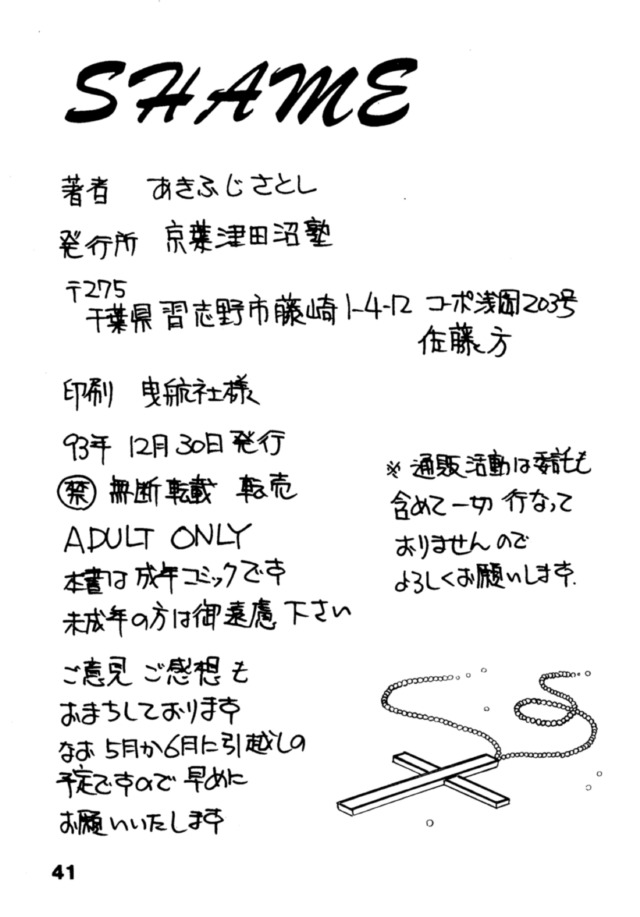 SHAME
著者 あきふじさとし
発行所 京葉津田沼塾
〒275
千葉県習志野市藤崎1-4-12 コーポ浅岡203号
佐藤方
印刷 曳航社様
93年 12月30日発行
禁 無断転載 転売
ADULT ONLY
本書は成年コミックです
未成年の方は御遠慮下さい
※通販活動は委託も
含めて一切行なって
おりませんので
よろしくお願いします.
ご意見ご感想も
おまちしております
なお5月か6月に引越しの
予定ですので早めに
お願いいたします
41